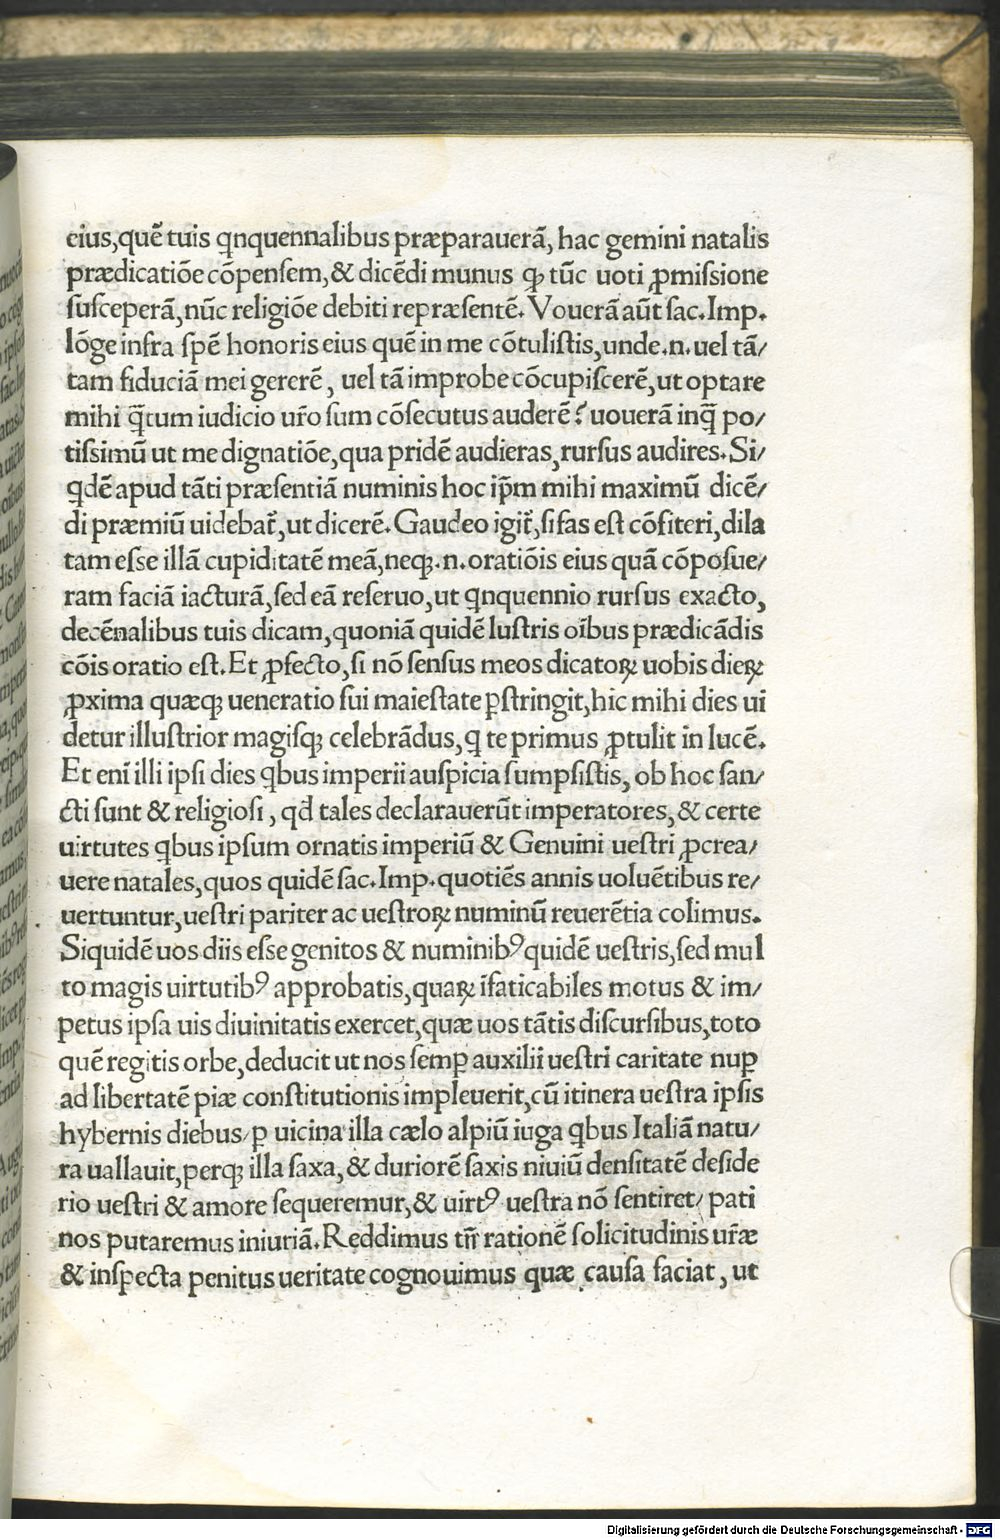 eius,quẽ tuis ꝗnquennalibus præparauerã, hac gemini natalis
prædicatiõe cõpenſem,& dicẽdi munus ꝙ tũc uoti ꝓmiſsione
ſuſceperã,nũc religiõe debiti repræſentẽ. Vouerã aũt ſac.Imp.
lõge infra ſpẽ honoris eius quẽ in me cõtuliſtis,unde.n.uel tã/
tam fiduciã mei gererẽ, uel tã improbe cõcupiſcerẽ,ut optare
mihi q̃tum iudicio ur̃o ſum cõſecutus auderẽ? uouerã inq̃ po/
tiſsimũ ut me dignatiõe,qua pridẽ audieras,rurſus audires.Si/
ꝗdẽ apud tãti præſentiã numinis hoc ip̃m mihi maximũ dicẽ/
di præmiũ uidebat̃,ut dicerẽ.Gaudeo igit̃,ſi fas eſt cõfiteri,dila
tam eſse illã cupiditatẽ meã,neqꝫ.n.oratiõis eius quã cõpoſue/
ram faciã iacturã,ſed eã reſeruo,ut ꝗnquennio rurſus exacto,
decẽnalibus tuis dicam,quoniã quidẽ luſtris oĩbus prædicãdis
cõis oratio eſt.Et ꝓfecto,ſi nõ ſenſus meos dicatoꝝ uobis dieꝝ
ꝓxima quæqꝫ ueneratio ſui maieſtate ꝑſtringit,hic mihi dies ui
detur illuſtrior magiſqꝫ celebrãdus,ꝗ te primus ꝓtulit in lucẽ.
Et enĩ illi ipſi dies ꝗbus imperii auſpicia ſumpſiſtis, ob hoc ſan/
cti ſunt & religioſi, qd̃ tales declarauerũt imperatores,& certe
uirtutes ꝗbus ipſum ornatis imperiũ & Genuini ueſtri ꝓcrea/
uere natales,quos quidẽ ſac.Imp.quotiẽs annis uoluẽtibus re/
uertuntur,ueſtri pariter ac ueſtroꝝ numinũ reuerẽtia colimus.
Siquidẽ uos diis eſse genitos & numinibꝰ quidẽ ueſtris,ſed mul
to magis uirtutibꝰ approbatis,quaꝝ ĩfaticabiles motus & im/
petus ipſa uis diuinitatis exercet,quæ uos tãtis diſcurſibus,toto
quẽ regitis orbe,deducit ut nos ſemꝑ auxilii ueſtri caritate nuꝑ
ad libertatẽ piæ conſtitutionis impleuerit,cũ itinera ueſtra ipſis
hybernis diebus/ꝑ uicina illa cælo alpiũ iuga ꝗbus Italiã natu/
ra uallauit,perqꝫ illa ſaxa,& duriorẽ ſaxis niuiũ denſitatẽ deſide
rio ueſtri & amore ſequeremur,& uirtꝰ ueſtra nõ ſentiret/ pati
nos putaremus iniuriã.Reddimus tñ rationẽ ſolicitudinis ur̃æ
& inſpecta penitus ueritate cognouimus quæ cauſa faciat, ut
Digitalisierung gefördert durch die Deutsche Forschungsgemeinschaft - DFG